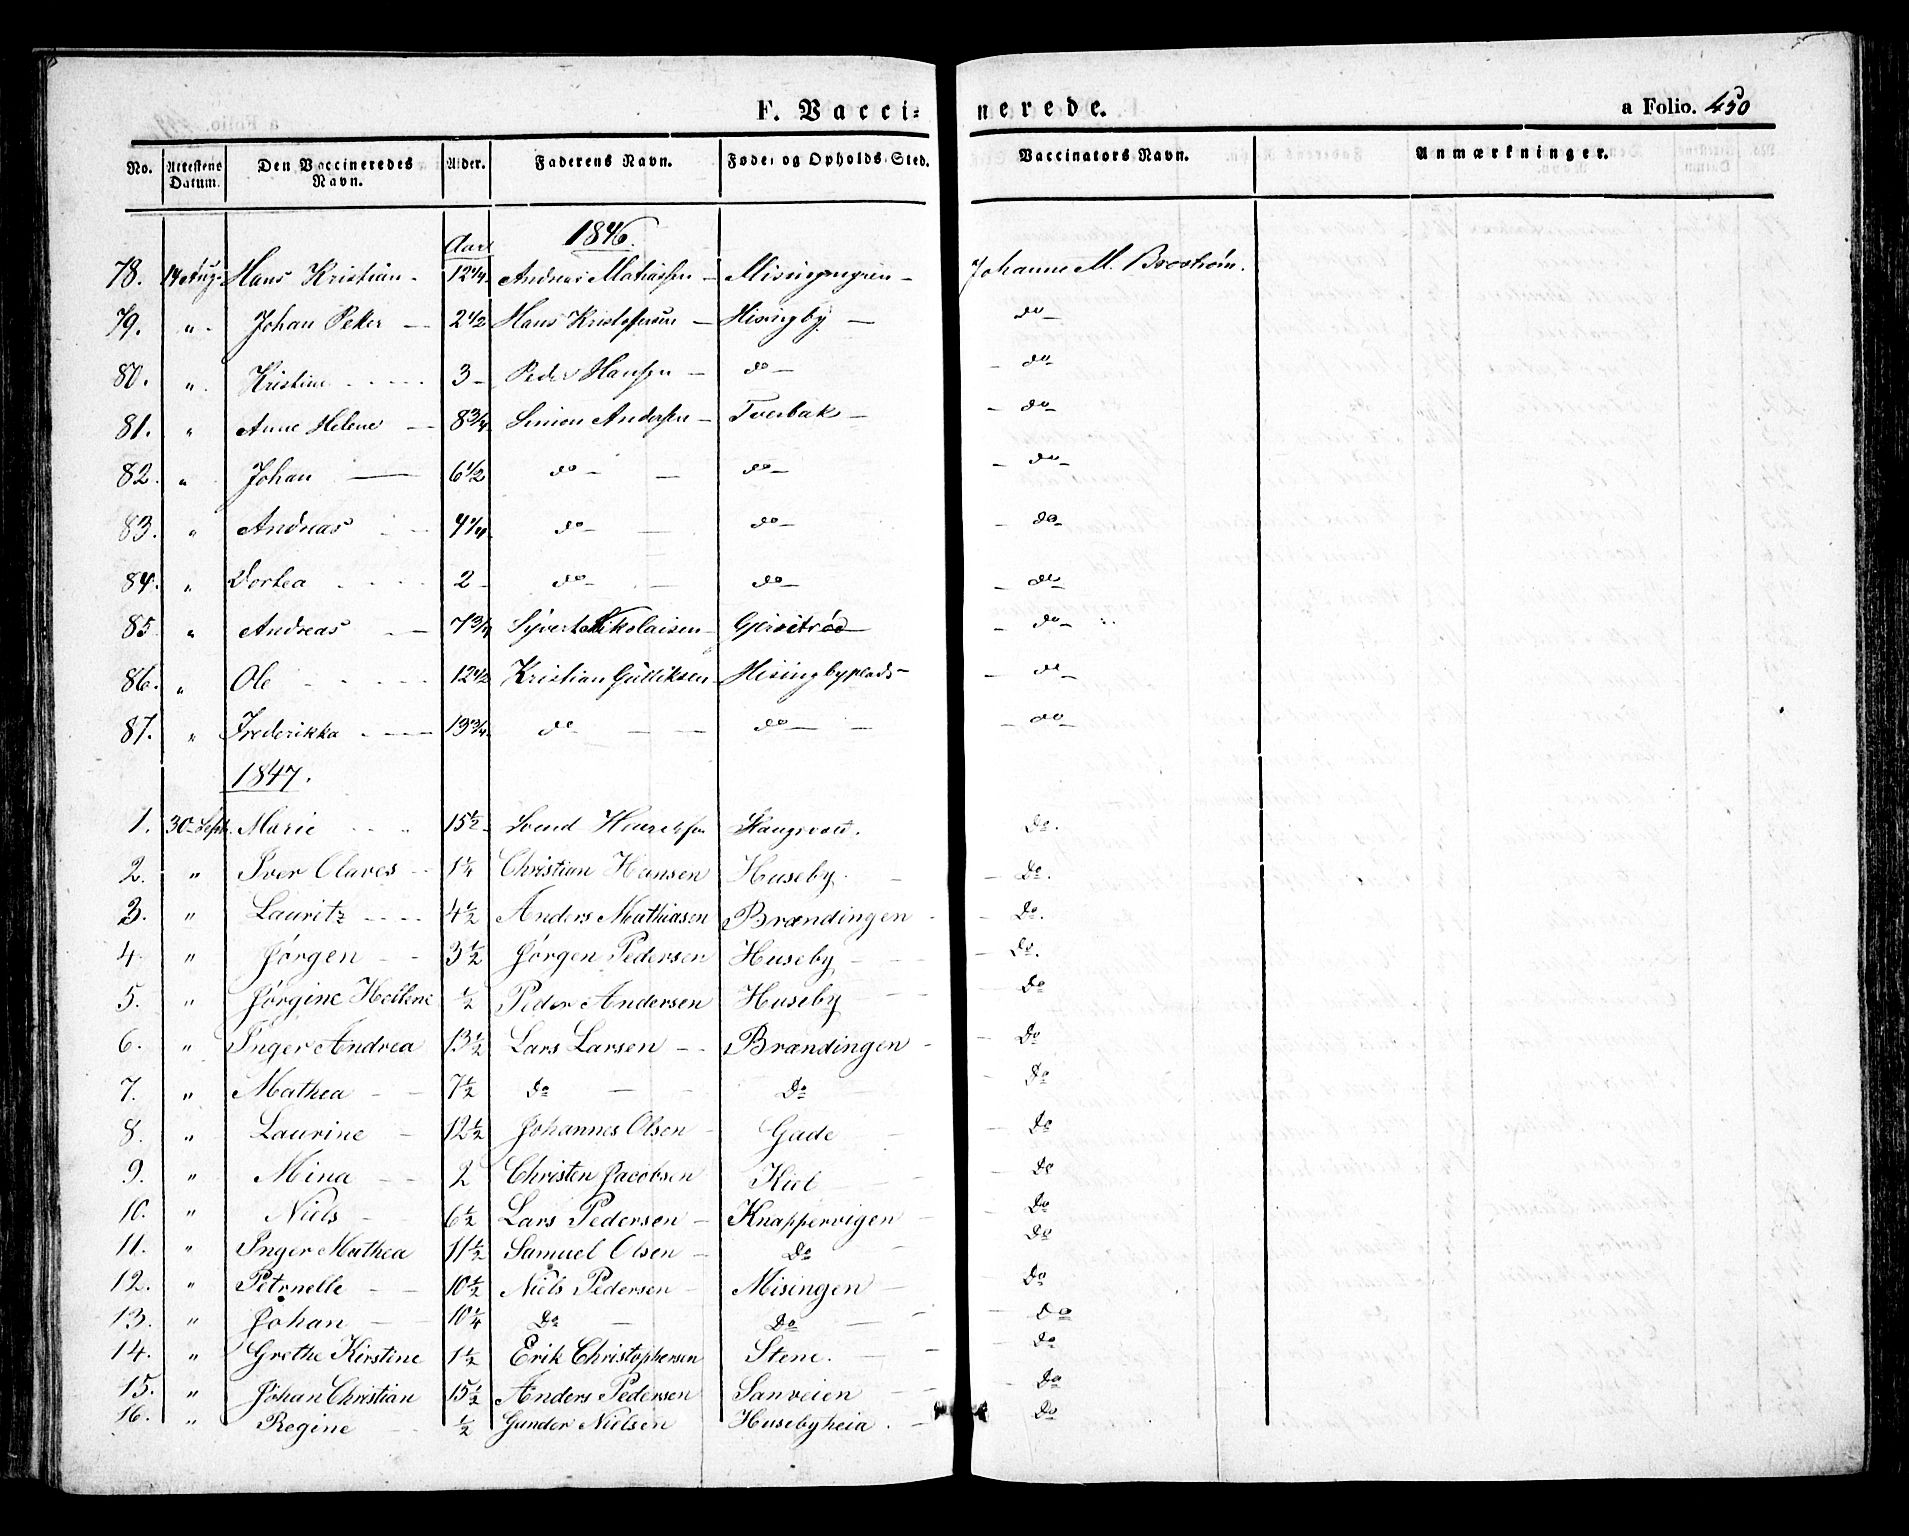 F. Vacci-
nerede.
a Folio. 450
No. Attestens Datum. Den Vaccineredes Navn. Alder. Faderens Navn. Føde- og Opholds-Sted. Vaccinators Navn. Anmærkninger.
Aar 1846.
78. 14 Aug. Hans Kristian 12 1/4 Andreas Matiassen Johanne M. Brostrøm.
79. " Johan Peter 2 1/2 Hans Kristofersen Hisingby do
80. " Kristine 3 Peder Hansen do do
81. " Anne Helene 8 3/4 Simon Andersen Tverbak do
82. " Johan 6 1/2 do do do
83. " Andreas 4 1/4 do do do
84. " Dortea 2 do do do
85. " Andreas 7 3/4 Syvert Nikolaisen Gjersitrød do
86. " Ole 12 1/2 Kristian Gulliksen Hisingbyplads do
87. " Frederikka 13 3/4 do do do
1847.
1. 30 Sept. Marie 15 1/2 Svend Do.
2. " Iver Olaves 1 1/4 Christian Hansen Huseby Do.
3. " Lauritz 4 1/2 Anders Mathiasen Brændingen Do.
4. " Jørgen 3 1/2 Jørgen Pedersen Huseby Do.
5. " Jørgine Hellene 1/2 Peder Andersen Huseby Do
6. " Inger Andrea 13 1/2 Lars Larsen Brændingen Do
7. " Mathea 7 1/2 Do Do Do
8. " Laurine 12 1/2 Johannes Olsen Gade Do
9. " Mina 2 Christen Jacobsen Kiil Do
10. " Niels 6 1/2 Lars Pedersen Knappervigen Do
11. " Inger Mathea 11 1/2 Samuel Olsen Do Do
12. " Petrnelle 10 1/2 Niels Pedersen Misingen Do
13. " Johan 10 1/4 Do Do Do
14. " Grethe Kirstine 1 1/2 Erik Christophersen Stene. Do
15. " Johan Christian 15 1/2 Anders Pedersen Sanveien Do
16. " Regine 1/2 Gunder Nielsen Husebyheia. Do